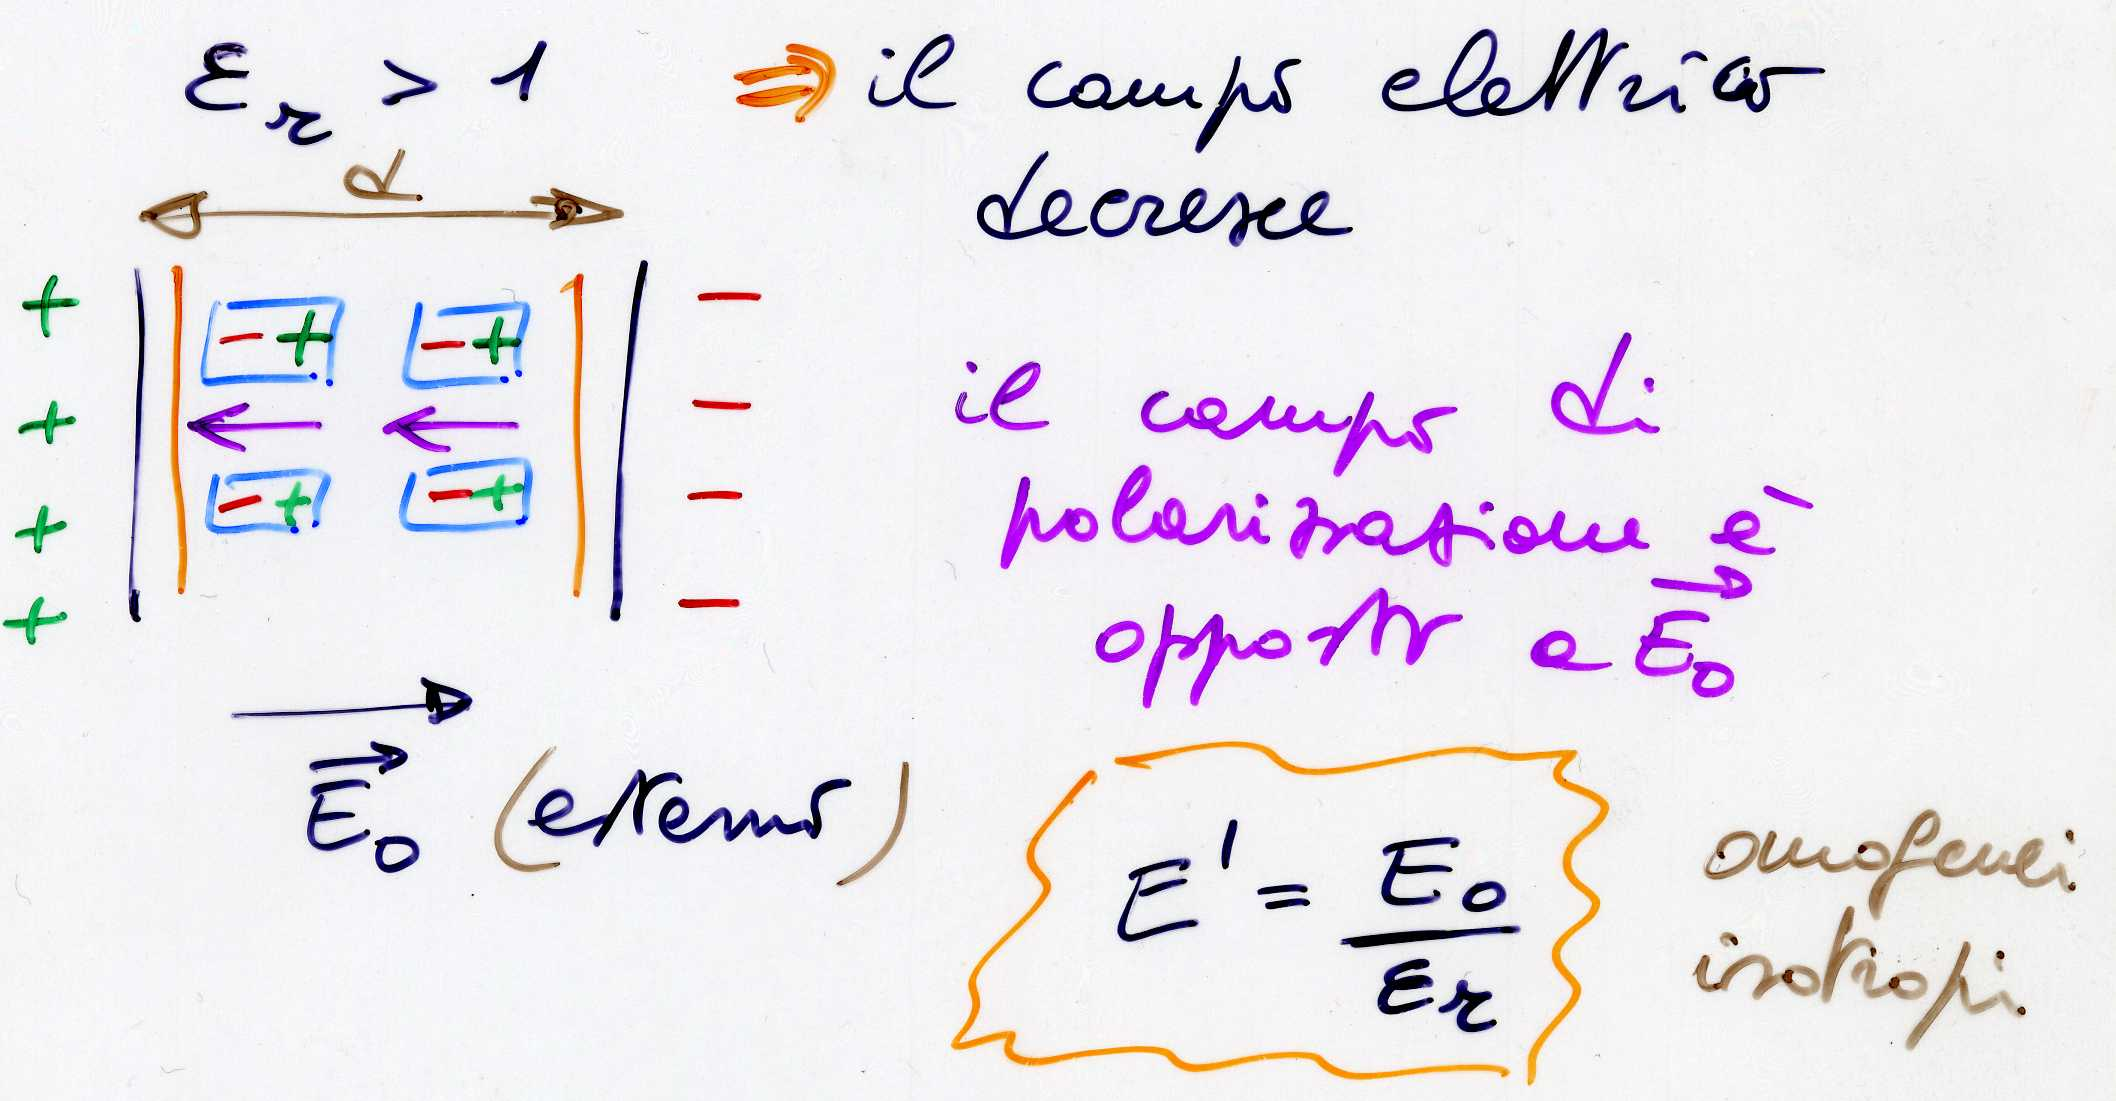 εr > 1 ⇒ il campo elettrico
decresce
d
+ - + - + -
+ -
+ - + - + -
+ -
il campo di
polarizzazione è
opposto a E⃗₀
E⃗₀ (esterno)
E' = E₀/εr
omogenei
isotropi